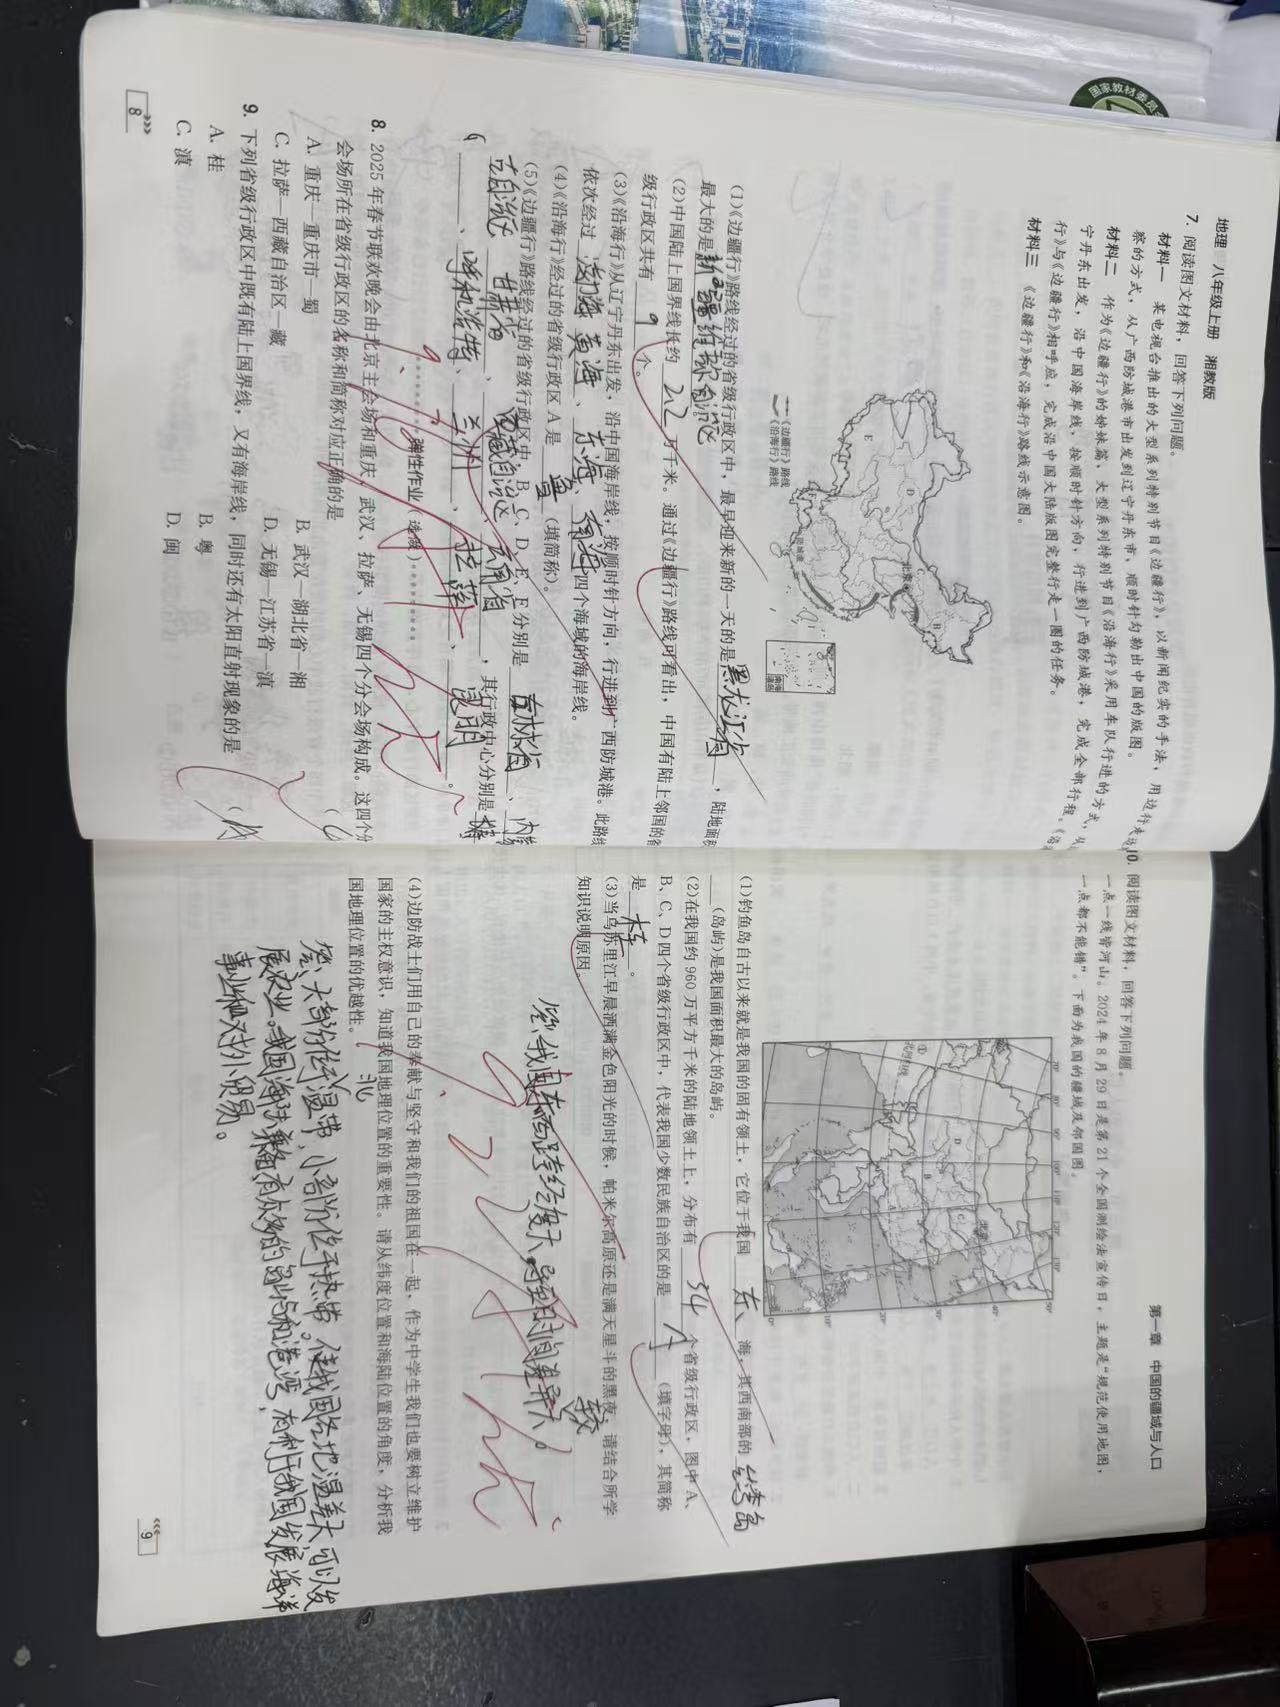 国家教材委员会
地理 八年级上册 湘教版
7. 阅读图文材料，回答下列问题。
材料一 某电视台推出的大型系列特别节目《边疆行》，以新闻纪实的手法，用边行走边
察的方式，从广西防城港市出发到辽宁丹东市，顺时针勾勒出中国的版图。
材料二 作为《边疆行》的姊妹篇，大型系列特别节目《沿海行》采用车队行进的方式，从
宁丹东出发，沿中国海岸线，按顺时针方向，行进到广西防城港，完成全部行程。《沿
行》与《边疆行》相呼应，完成沿中国大陆版图完整行走一圈的任务。
材料三 《边疆行》和《沿海行》路线示意图。
E
D
B
北京
防城港
南海诸岛
《边疆行》路线
《沿海行》路线
(1)《边疆行》路线经过的省级行政区中，最早迎来新的一天的是黑龙江省，陆地面积
最大的是新疆维吾尔自治区
(2)中国陆上国界线长约 2.2 万千米。通过《边疆行》路线可看出，中国有陆上邻国的省
级行政区共有 9 个。
(3)《沿海行》从辽宁丹东出发，沿中国海岸线，按顺时针方向，行进到广西防城港。此路线
依次经过 渤海、黄海、东海、南海 四个海域的海岸线。
(4)《沿海行》经过的省级行政区 A 是（填简称）。
(5)《边疆行》路线经过的省级行政区中，B、C、D、E、F 分别是 吉林省、内蒙
古自治区、甘肃省、西藏自治区、云南省，其行政中心分别是
、呼和浩特、兰州、拉萨、昆明。
弹性作业（选做）
8. 2025 年春节联欢晚会由北京主会场和重庆、武汉、拉萨、无锡四个分会场构成。这四个分
会场所在省级行政区的名称和简称对应正确的是
A. 重庆—重庆市—蜀
B. 武汉—湖北省—湘
C. 拉萨—西藏自治区—藏
D. 无锡—江苏省—滇
9. 下列省级行政区中既有陆上国界线，又有海岸线，同时还有太阳直射现象的是
A. 桂
B. 粤
C. 滇
D. 闽
8
第一章 中国的疆域与人口
10. 阅读图文材料，回答下列问题。
一点一线皆河山。2024 年 8 月 29 日是第 21 个全国测绘法宣传日，主题是“规范使用地图，
一点都不能错”。下面为我国的疆域及邻国图。
(1)钓鱼岛自古以来就是我国的固有领土，它位于我国 东 海，其西南部的 台湾岛
（岛屿）是我国面积最大的岛屿。
(2)在我国约 960 万平方千米的陆地领土上，分布有 34 个省级行政区，图中 A、
B、C、D 四个省级行政区中，代表我国少数民族自治区的是 A（填字母），其简称
是 桂。
(3)当乌苏里江早晨洒满金色阳光的时候，帕米尔高原还是满天星斗的黑夜，请结合所学
知识说明原因。
答：我国东西跨经度大，导致时间差异较大。
(4)边防战士们用自己的奉献与坚守和我们的祖国在一起，作为中学生我们也要树立维护
国家的主权意识，知道我国地理位置的重要性。请从纬度位置和海陆位置的角度，分析我
国地理位置的优越性。
答：大部分位于北温带，小部分位于热带。使我国各地温差大，可以发
展农业。我国海陆兼备，有众多的岛屿和港湾，有利于我国发展海洋
事业和对外贸易。
9